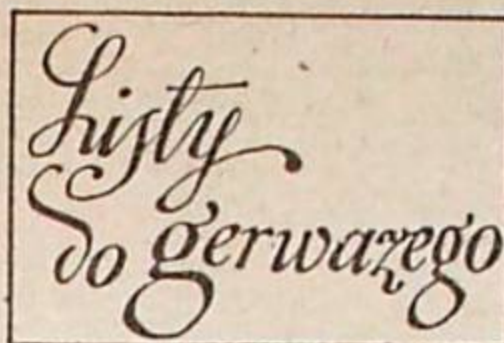 Listy
do gerwazego